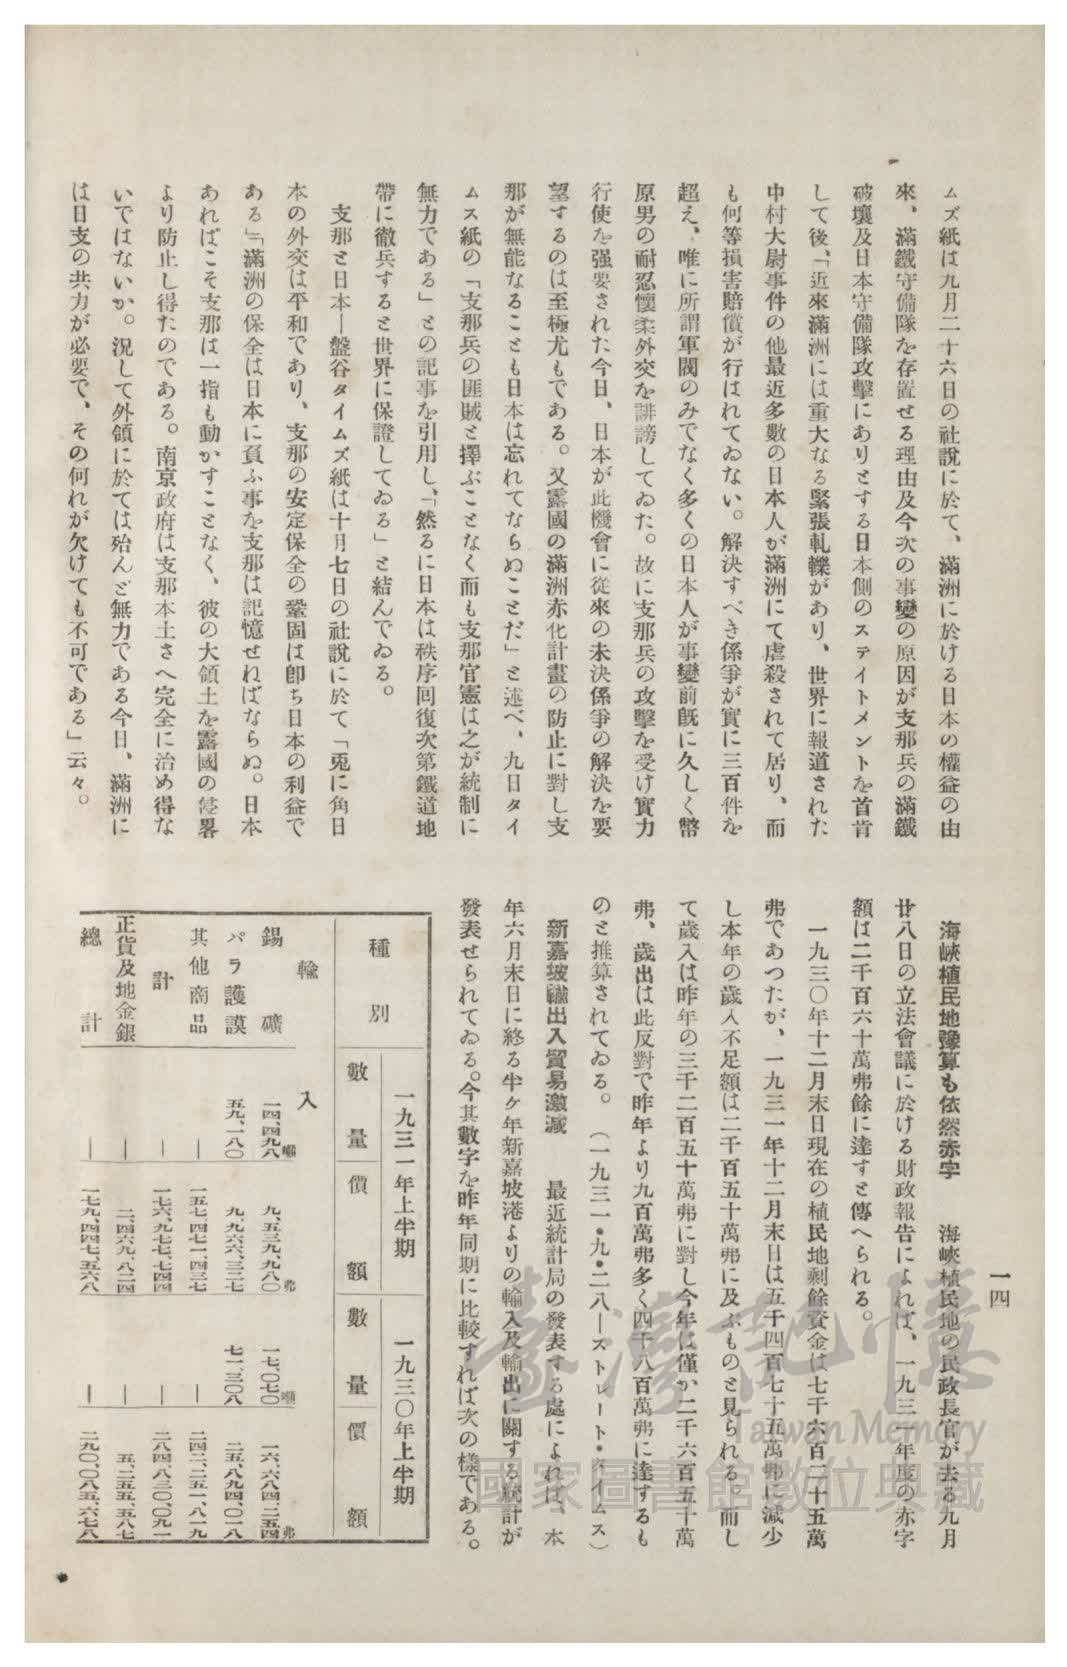 一四
ムズ紙は九月二十六日の社說に於て、滿洲に於ける日本の權益の由
來、滿鐵守備隊を存置せる理由及今次の事變の原因が支那兵の滿鐵
破壞及日本守備隊攻擊にありとする日本側のステイトメントを首肯
して後、「近來滿洲には重大なる緊張軋轢があり、世界に報道された
中村大尉事件の他最近多數の日本人が滿洲にて虐殺されて居り、而
も何等損害賠償が行はれてゐない。解決すべき係爭が實に三百件を
超え、唯に所謂軍閥のみでなく多くの日本人が事變前既に久しく幣
原男の耐忍懷柔外交を誹謗してゐた。故に支那兵の攻擊を受け實力
行使を强要された今日、日本が此機會に從來の未決係爭の解決を要
望するのは至極尤もである。又露國の滿洲赤化計畫の防止に對し支
那が無能なることも日本は忘れてならぬことだ」と述べ、九日タイ
ムス紙の「支那兵の匪賊と擇ぶことなく而も支那官憲は之が統制に
無力である」との記事を引用し、「然るに日本は秩序回復次第鐵道地
帶に徹兵すると世界に保證してゐる」と結んでゐる。
支那と日本―盤谷タイムズ紙は十月七日の社說に於て「兎に角日
本の外交は平和であり、支那の安定保全の鞏固は卽ち日本の利益で
ある」「滿洲の保全は日本に負ふ事を支那は記憶せねばならぬ。日本
あればこそ支那は一指も動かすことなく、彼の大領土を露國の侵畧
より防止し得たのである。南京政府は支那本土さへ完全に治め得な
いではないか。況して外領に於ては殆んど無力である今日、滿洲に
は日支の共力が必要で、その何れが欠けても不可である」云々。
海峽植民地豫算も依然赤字　海峽植民地の民政長官が去る九月
廿八日の立法會議に於ける財政報告によれば、一九三一年度の赤字
額は二千百六十萬弗餘に達すと傳へられる。
一九三〇年十二月末日現在の植民地剩餘資金は七千六百二十五萬
弗であつたが、一九三一年十二月末日は五千四百七十五萬弗に減少
し本年の歲入不足額は二千百五十萬弗に及ぶものと見られる。而し
て歲入は昨年の三千二百五十萬弗に對し今年は僅か二千六百五十萬
弗、歲出は此反對で昨年より九百萬弗多く四千八百萬弗に達するも
のと推算されてゐる。（一九三一・九・二八―ストレート・タイムス）
新嘉坡輸出入貿易激減　最近統計局の發表する處によれば、本
年六月末日に終る半ケ年新嘉坡港よりの輸入及輸出に關する統計が
發表せられてゐる。今其數字を昨年同期に比較すれば次の樣である。
種別　一九三一年上半期　一九三〇年上半期
數量　價額　數量　價額
輸入
錫礦　一四、四九八噸　九、五三九、九八〇弗　一七、〇七〇噸　一六、六八四、二五四弗
パラ護謨　五九、一八〇　九、九六六、三二七　七一、三〇八　二五、八九四、〇一八
其他商品　―　一五七、四七一、四三七　―　二四二、二五一、八一九
計　―　一七六、九七七、七四四　―　二八四、八三〇、〇九一
正貨及地金銀　―　二、四六九、八二四　―　五、二五五、五八七
總計　―　一七九、四四七、五六八　―　二九〇、〇八五、六七八
臺灣記憶
Taiwan Memory
國家圖書館數位典藏